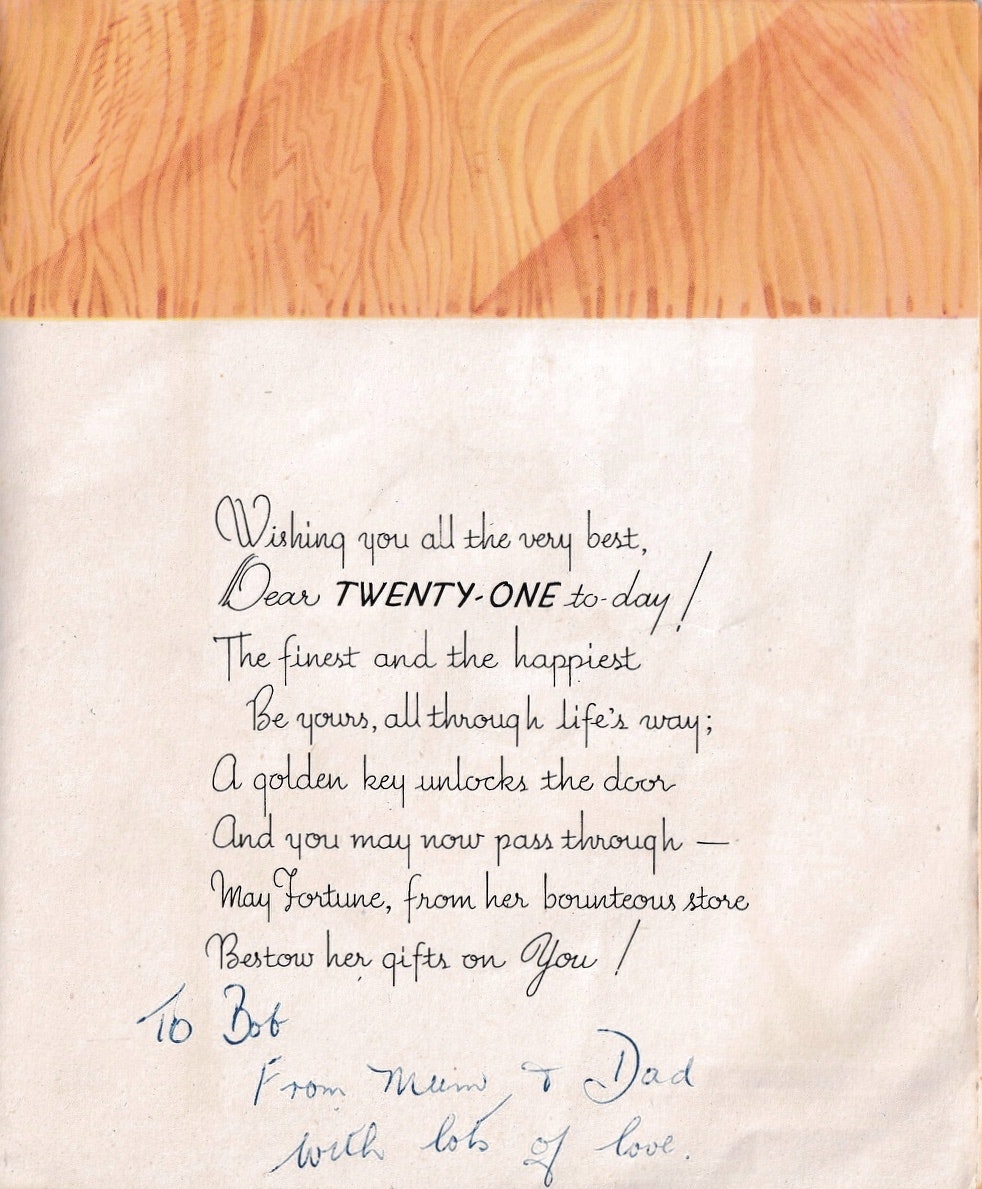 Wishing you all the very best,
Dear TWENTY-ONE to-day!
The finest and the happiest
Be yours, all through life's way;
A golden key unlocks the door
And you may now pass through —
May Fortune, from her bounteous store
Bestow her gifts on You!
To Bob
From Mum & Dad
with lots of love.